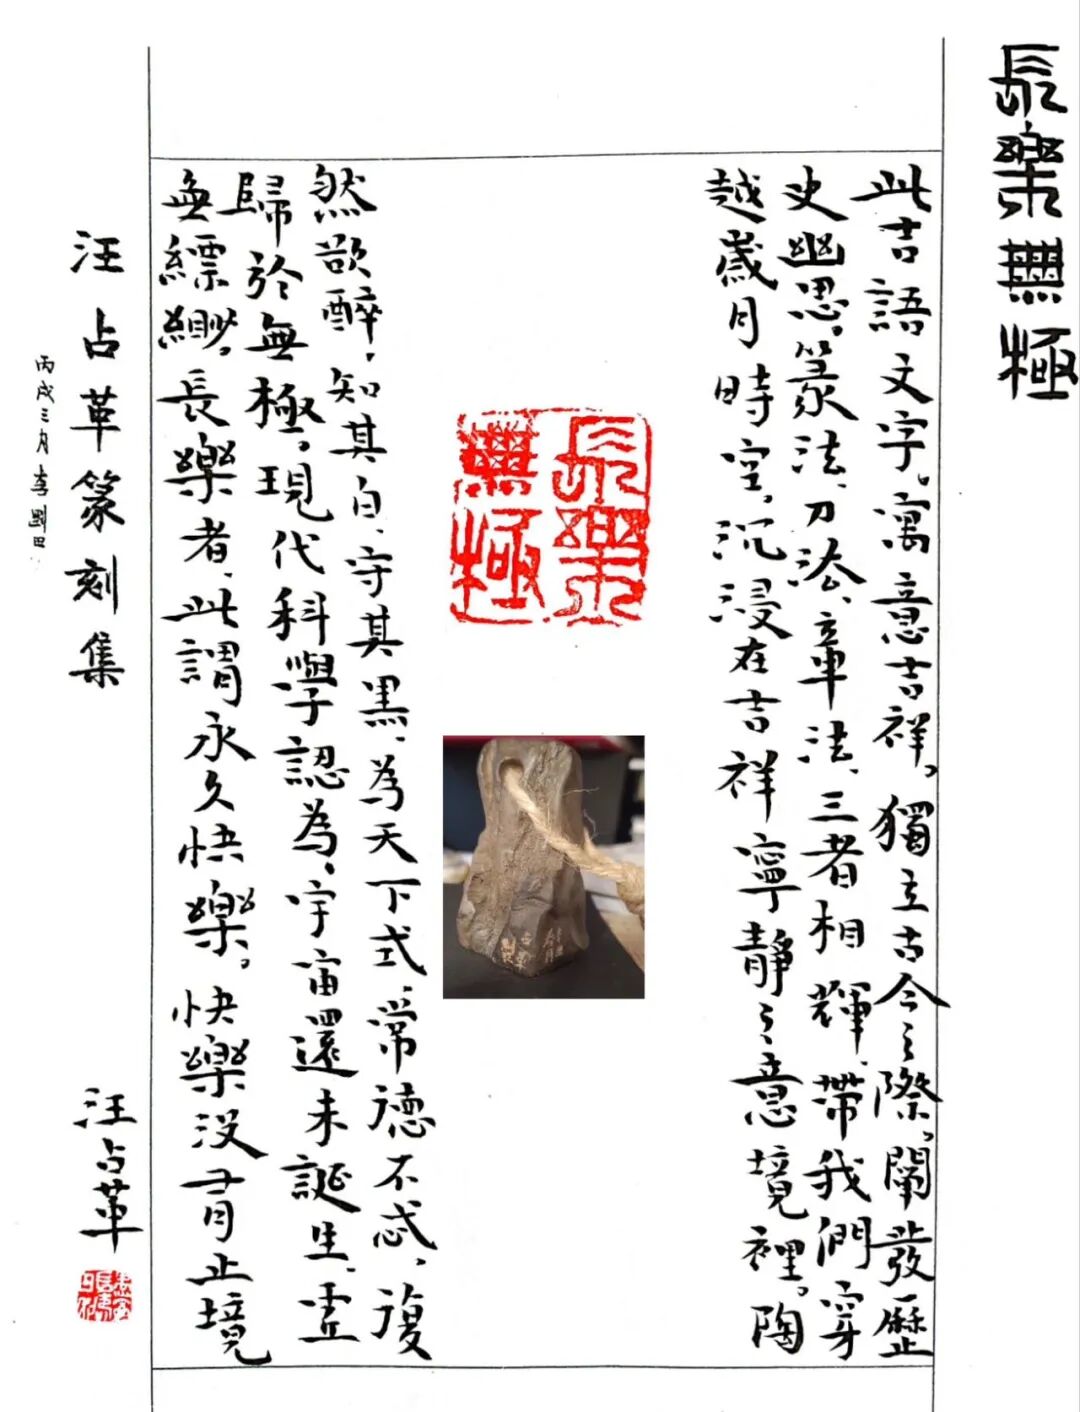 長樂無極
此吉語文字。寓意吉祥。獨立古今之際。闡發歷
史幽思。篆法、刀法、章法、三者相輝、帶我們穿
越歲月時空。沉浸在吉祥寧靜之意境裡。陶
長樂
無極
然欲醉。知其白、守其黑、為天下式。常德不忒。復
歸於無極。現代科學認為、宇宙還未誕生、虛
無縹緲。長樂者、此謂永久快樂。快樂没有止境
汪占革篆刻集
丙戌三月李剛田
汪占革